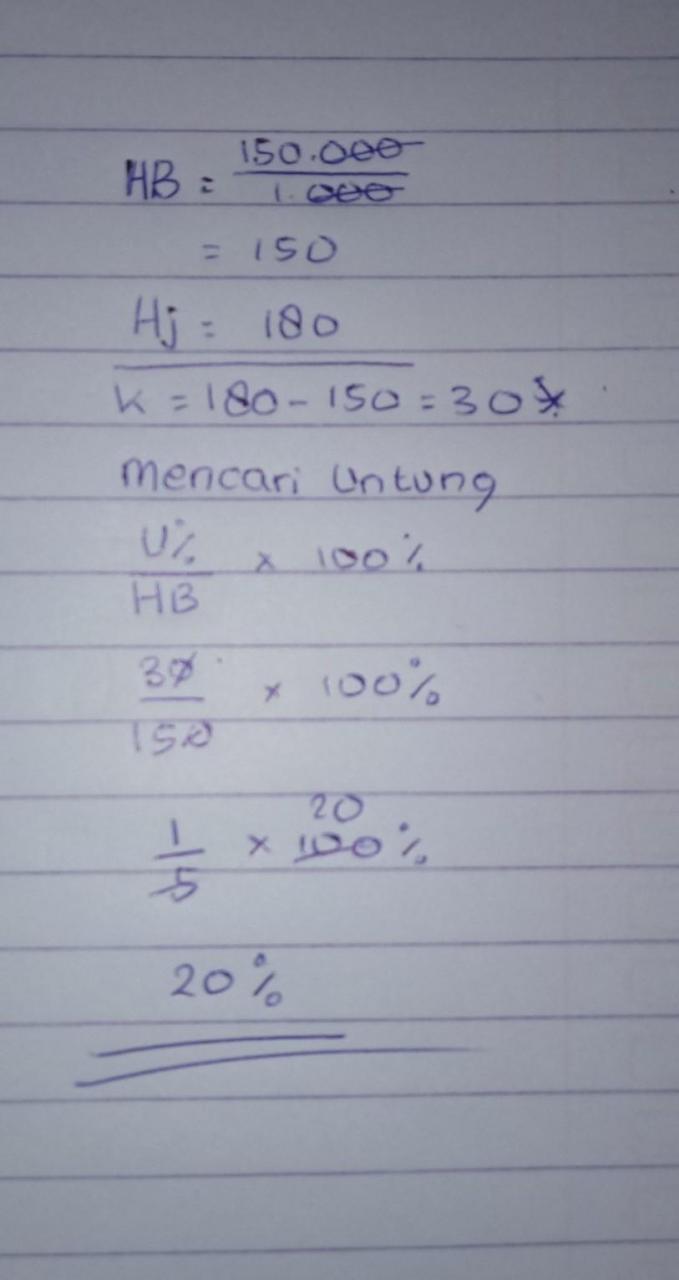 HB = 150.000
1.000
= 150
Hj = 180
K = 180 - 150 = 30
Mencari Untung
U%
HB × 100%
30
150 × 100%
20
1
5 × 100%
20%